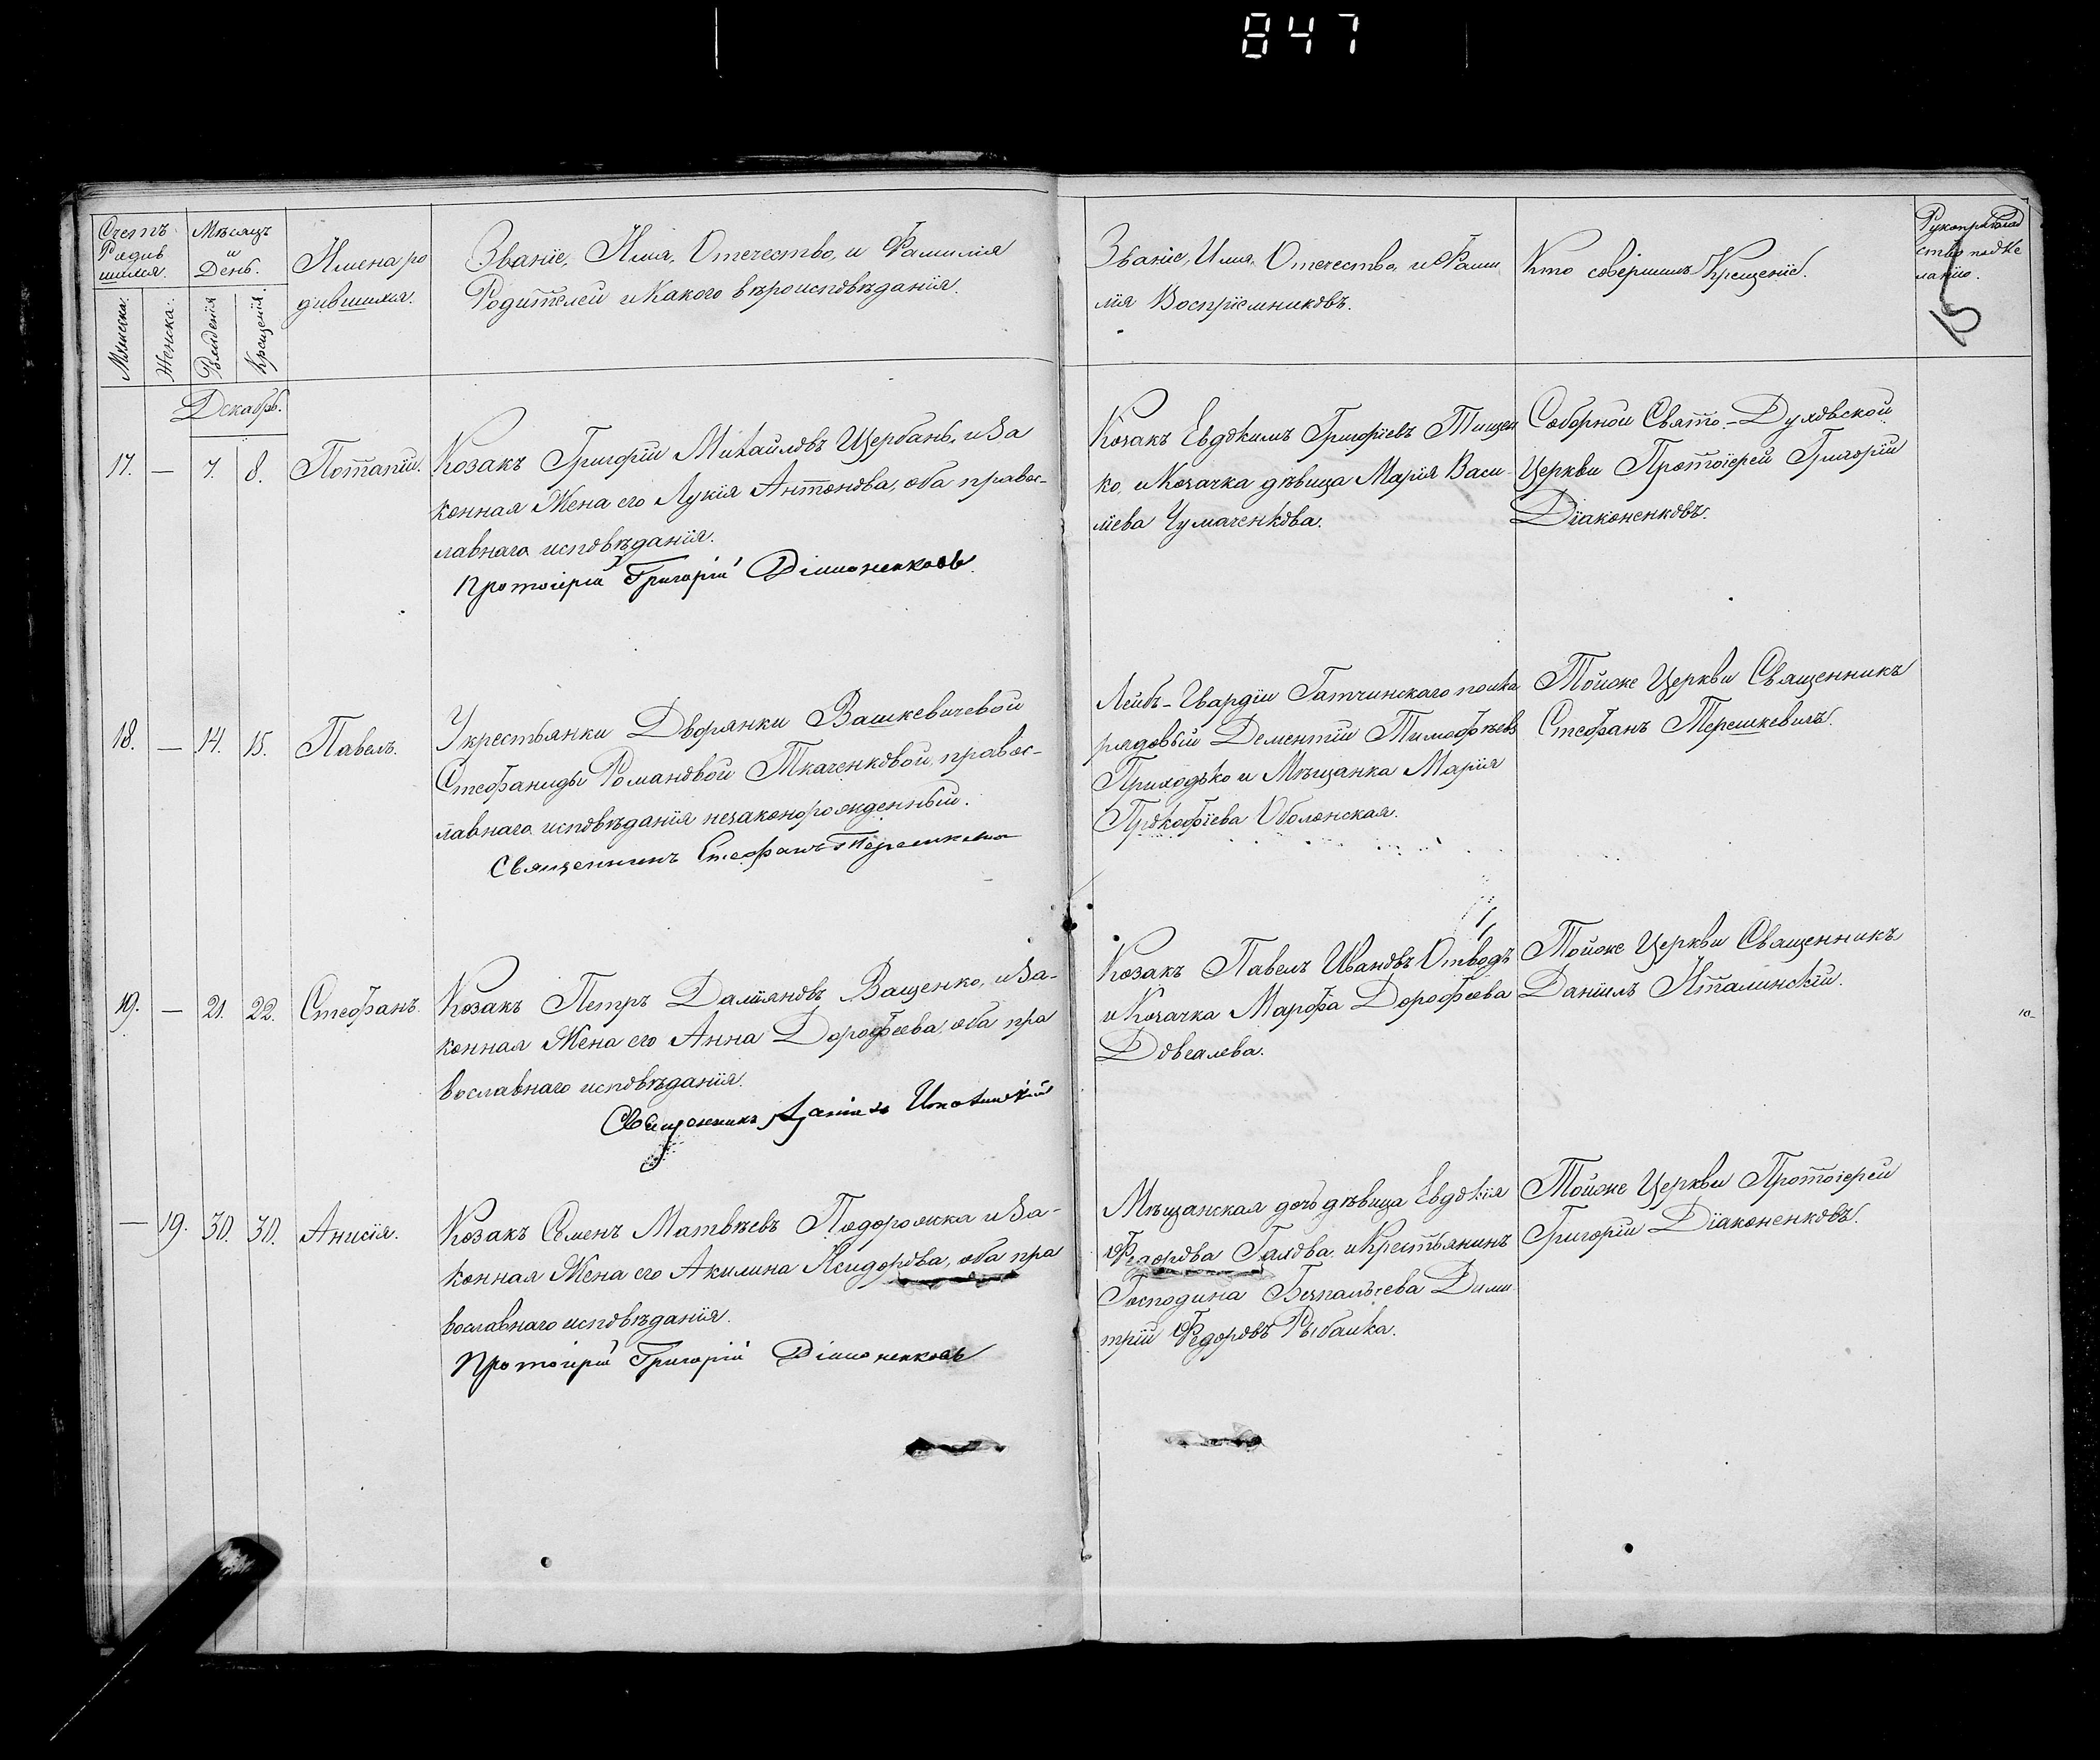 847
Счетъ
Родив
шихся.
Мужска.
Женска.
Мѣсяцъ
и
День.
Рожденія
Крещенія.
Имена ро
дившихся.
Званіе, Имя, Отечество, и Фамилія
Родителей и Какого вѣроисповѣданія.
Званіе, Имя, Отечество, и Фами
лія Воспріемниковъ.
Кто совершилъ Крещеніе.
Рукоприклад
ство по дже
ланію.
15
Декабрь.
17. — 7. 8. Потапій.
Козакъ Григорій Михайловъ Щербань, и За
конная Жена его Лукія Антонова, оба правос-
лавнаго исповѣданія.
Протоіерей Григорій Діаконенковъ
Козакъ Евдокимъ Григоріевъ Тищен
ко, и Козачка дѣвица Марія Васи-
ліева Чумаченкова.
Соборной Свято-Духовской
Церкви Протоіерей Григорій
Діаконенковъ.
18. — 14. 15. Павелъ.
У крестьянки Дворянки Вашкевичевой
Стефаниды Романовой Ткаченковой, правос-
лавнаго исповѣданія незаконорожденный.
Священникъ Стефанъ Терешкевичъ
Лейбъ-Гвардіи Гатчинскаго полка
рядовый Дементій Тимофѣевъ
Приходько и Мѣщанка Марія
Прокофіева Оболонская.
Тойже Церкви Священникъ
Стефанъ Терешкевичъ.
19. — 21. 22. Стефанъ.
Козакъ Петръ Даміановъ Ващенко, и За-
конная Жена его Анна Дорофеева, оба пра
вославнаго исповѣданія.
Священникъ Даніилъ
Козакъ Павелъ Ивановъ Отводъ
и Козачка Марфа Дорофеева
Довгалева.
Тойже Церкви Священникъ
Даніилъ
— 19. 30. 30. Анисія.
Козакъ Семенъ Матвѣевъ Подорожка и За-
конная Жена его Акилина Исидорова, оба пра
вославнаго исповѣданія.
Протоіерей Григорій Діаконенковъ
Мѣщанская дочь дѣвица Евдокія
Федорова и Крестьянинъ
Господина Безпальчева Дими
трій Федоровъ Рыбалка.
Тойже Церкви Протоіерей
Григорій Діаконенковъ.